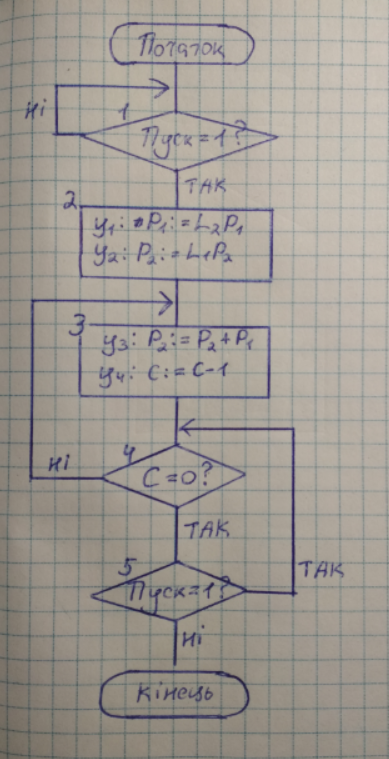 Початок
ні
1
Пуск=1?
ТАК
2
y₁: P₁:=L₂P₁
y₂: P₂:=L₁P₂
3
y₃: P₂:=P₂+P₁
y₄: C:=C-1
4
ні
C=0?
ТАК
5
Пуск=1?
ТАК
ні
кінець